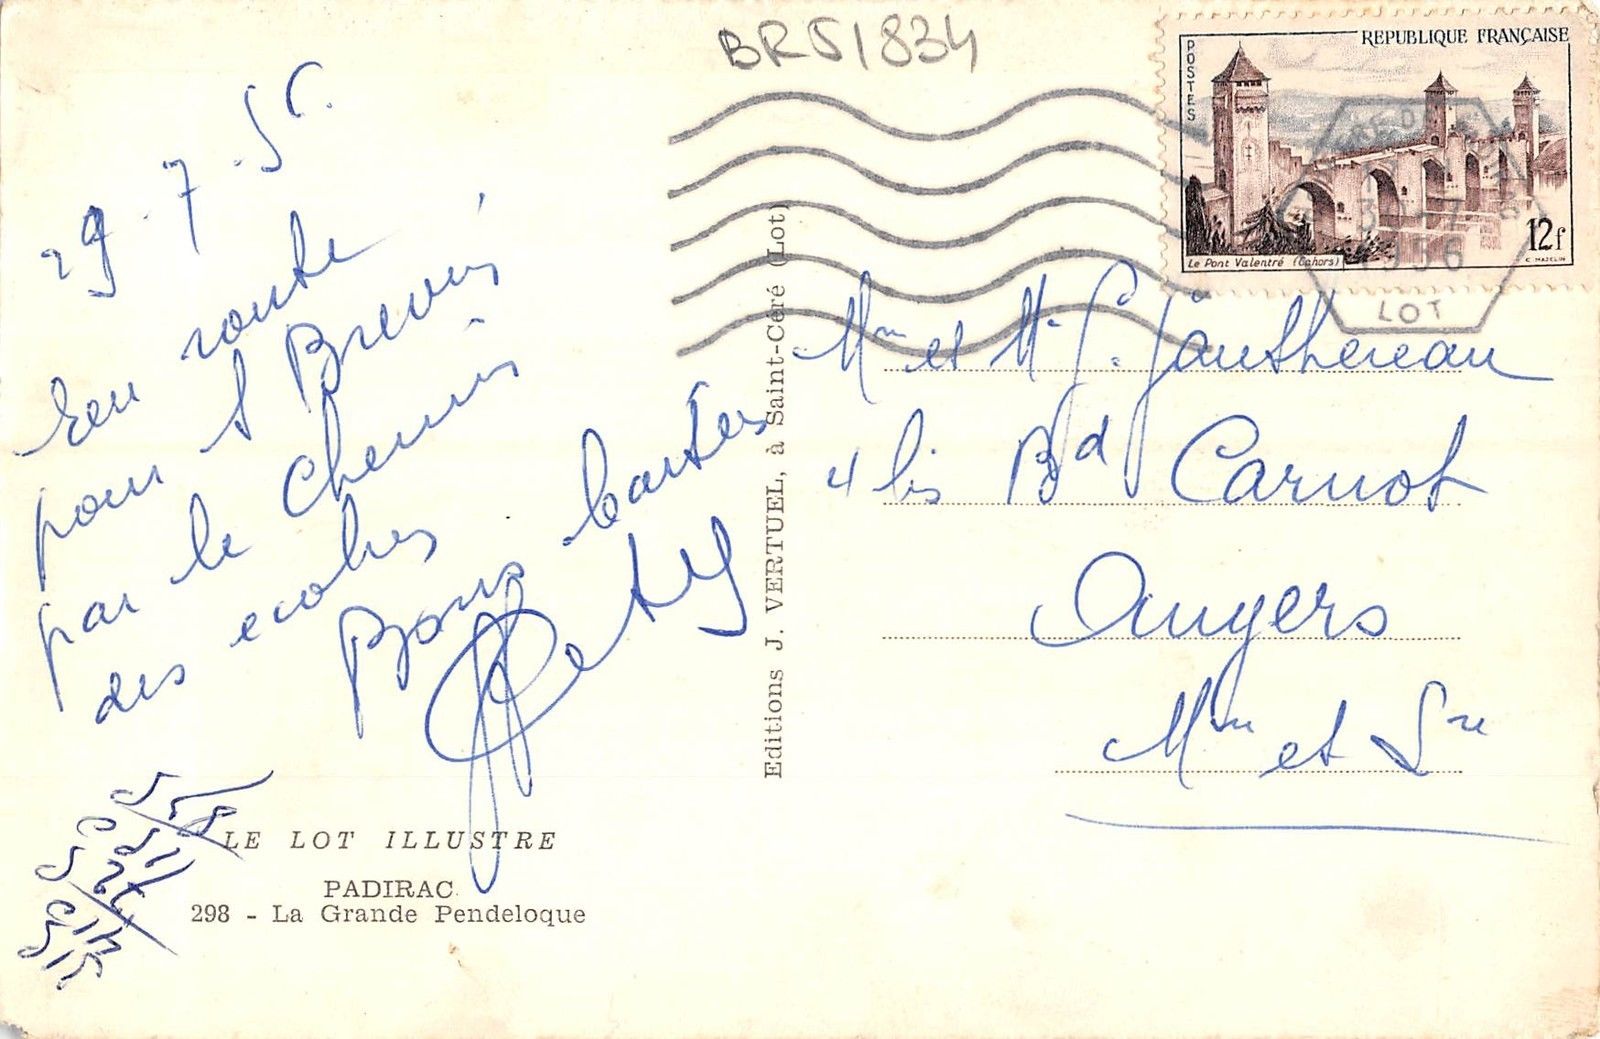 BR51834
REPUBLIQUE FRANÇAISE
POSTES
12f
Le Pont Valentré (Cahors)
C. MAZELIN
30-7
1956
LOT
29.7.56.
En route
pour St Brevin
par le Chemin
des ecoliers
Bons baisers
Mme et Mr G. Gauthereau
4 bis Bd Carnot
Angers
Mne et Lre
Editions J. VERTUEL, à Saint-Céré (Lot)
LE LOT ILLUSTRE
PADIRAC
298 - La Grande Pendeloque